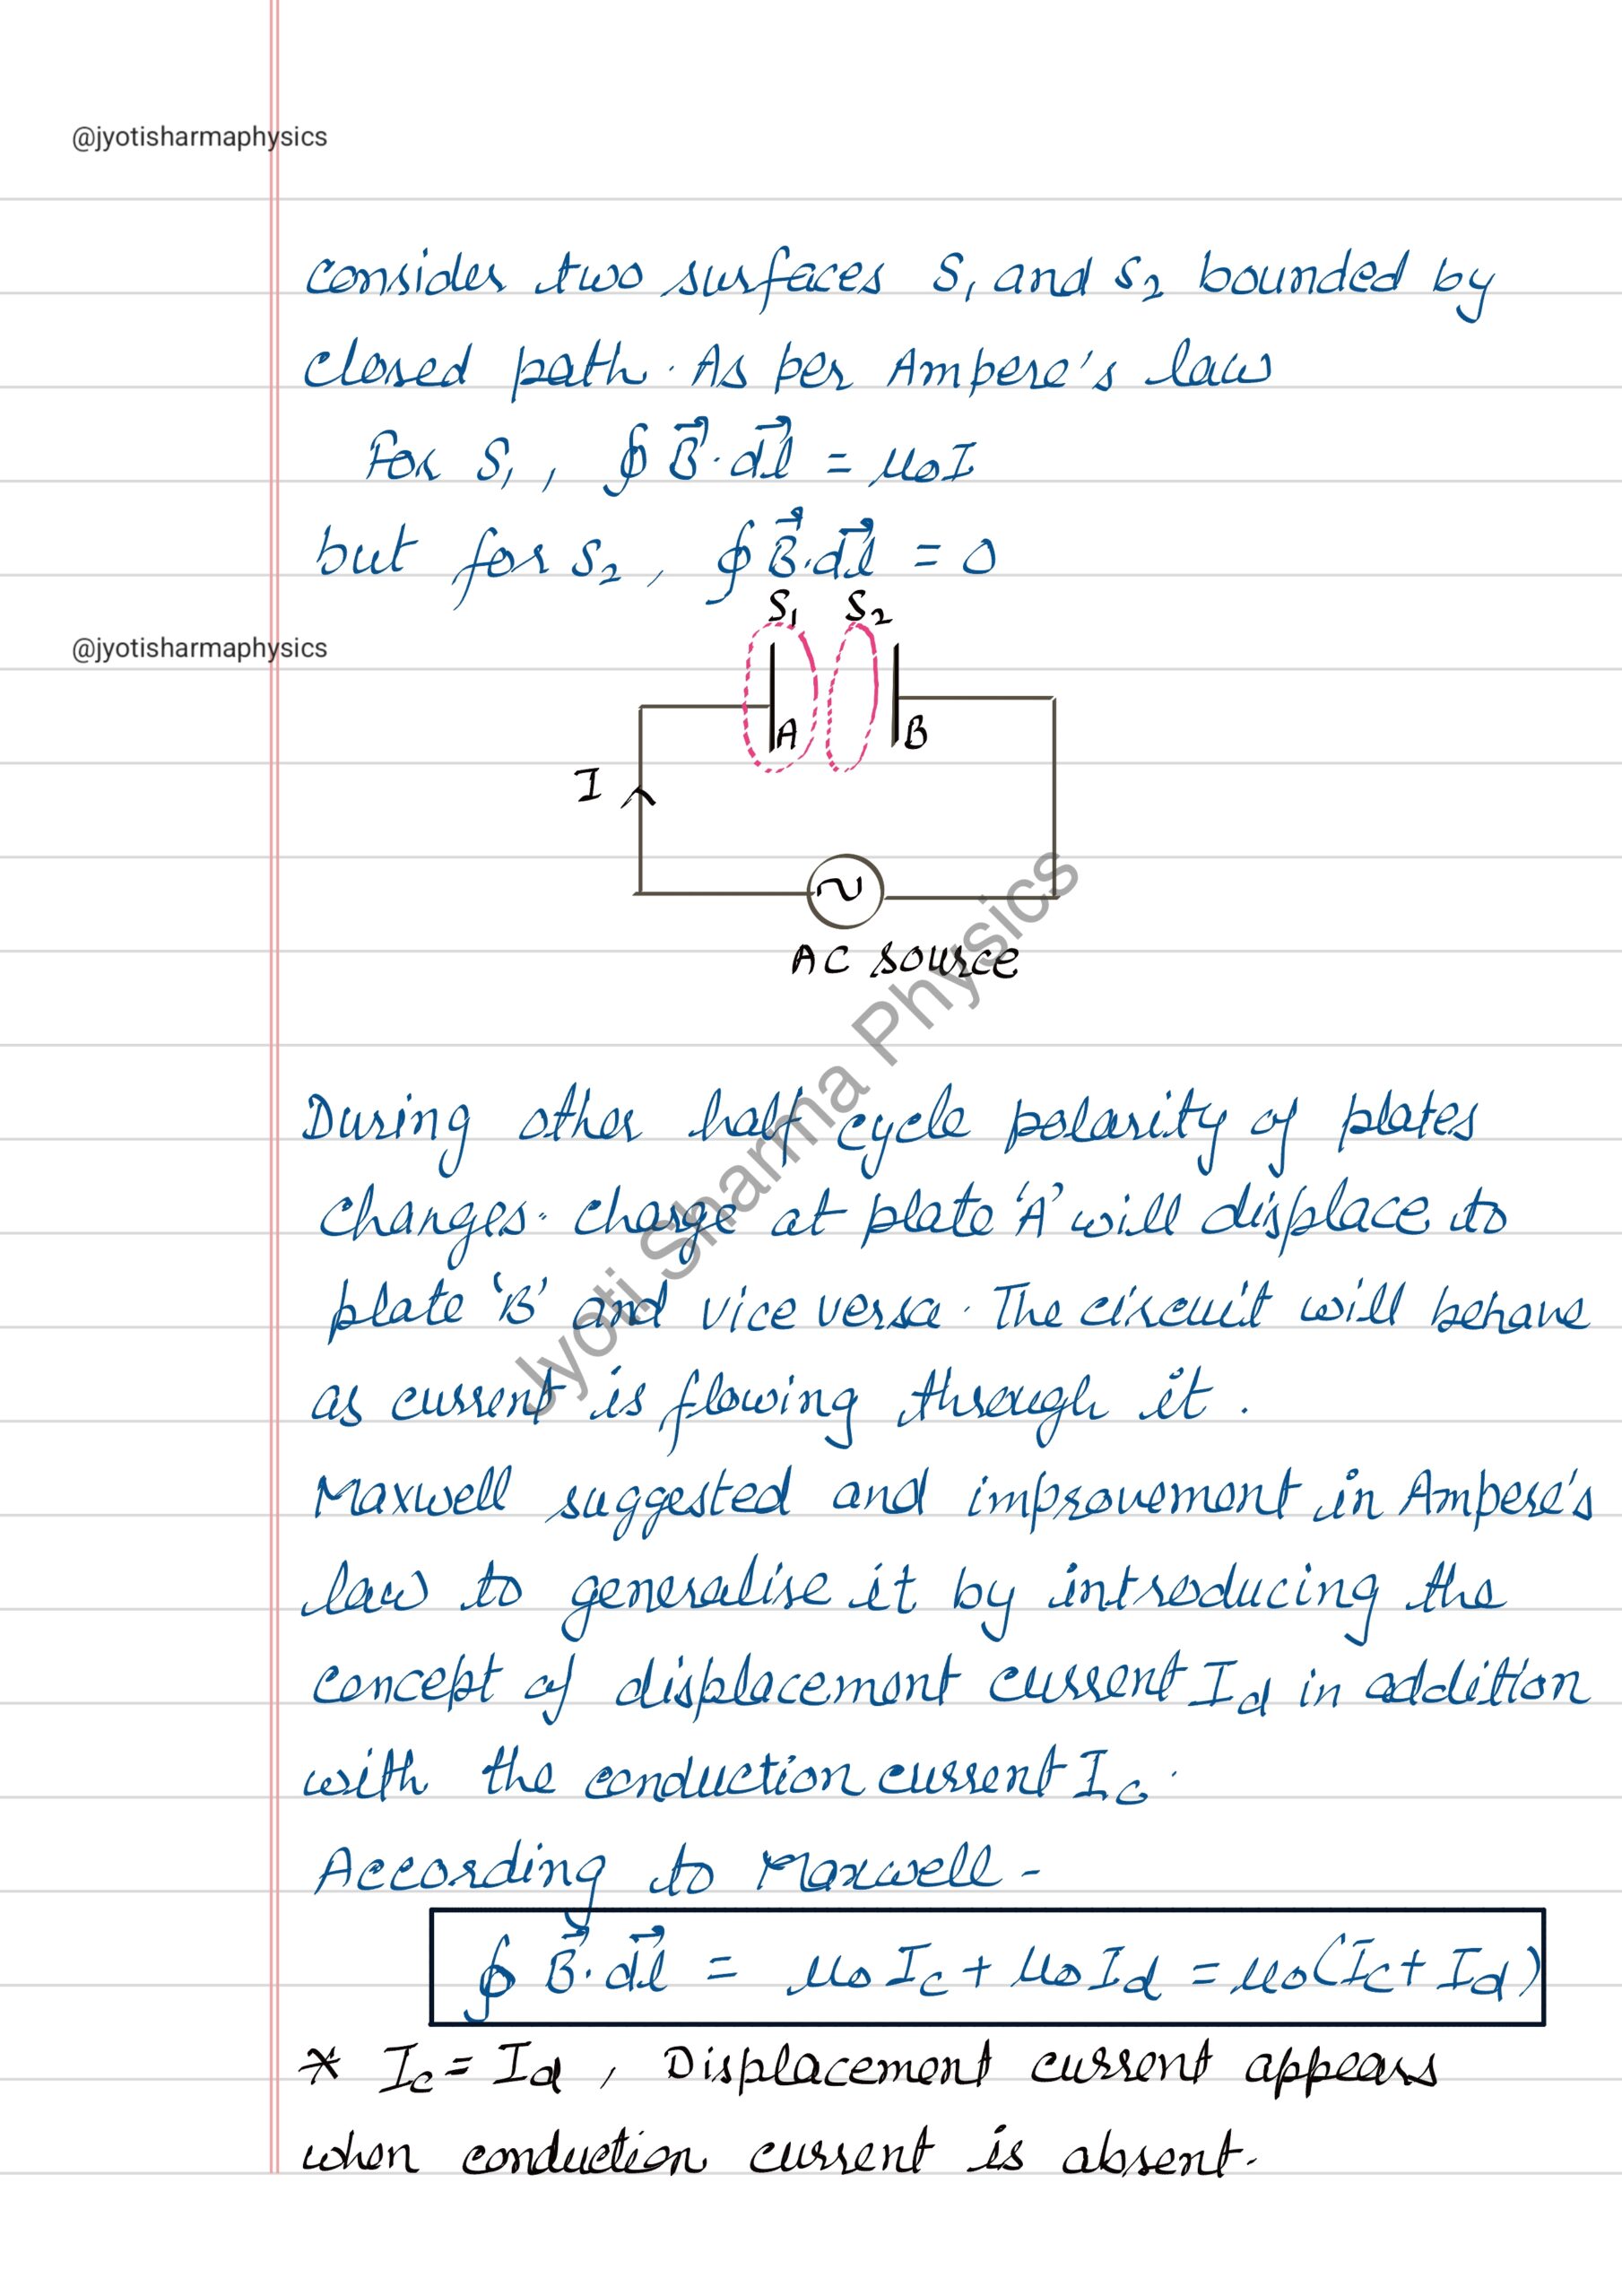 @jyotisharmaphysics
consider two surfaces S₁ and S₂ bounded by
closed path. As per Ampere's law
For S₁, ∮ B⃗·dl⃗ = μ₀I
but for S₂, ∮ B⃗·dl⃗ = 0
@jyotisharmaphysics
S₁ S₂
A B
I
AC source
Jyoti Sharma Physics
During other half cycle polarity of plates
changes. charge at plate 'A' will displace to
plate 'B' and vice versa. The circuit will behave
as current is flowing through it.
Maxwell suggested and improvement in Ampere's
law to generalise it by introducing the
concept of displacement current Id in addition
with the conduction current Ic.
According to Maxwell -
∮ B⃗·dl⃗ = μ₀Ic + μ₀Id = μ₀(Ic + Id)
* Ic = Id, Displacement current appears
when conduction current is absent.